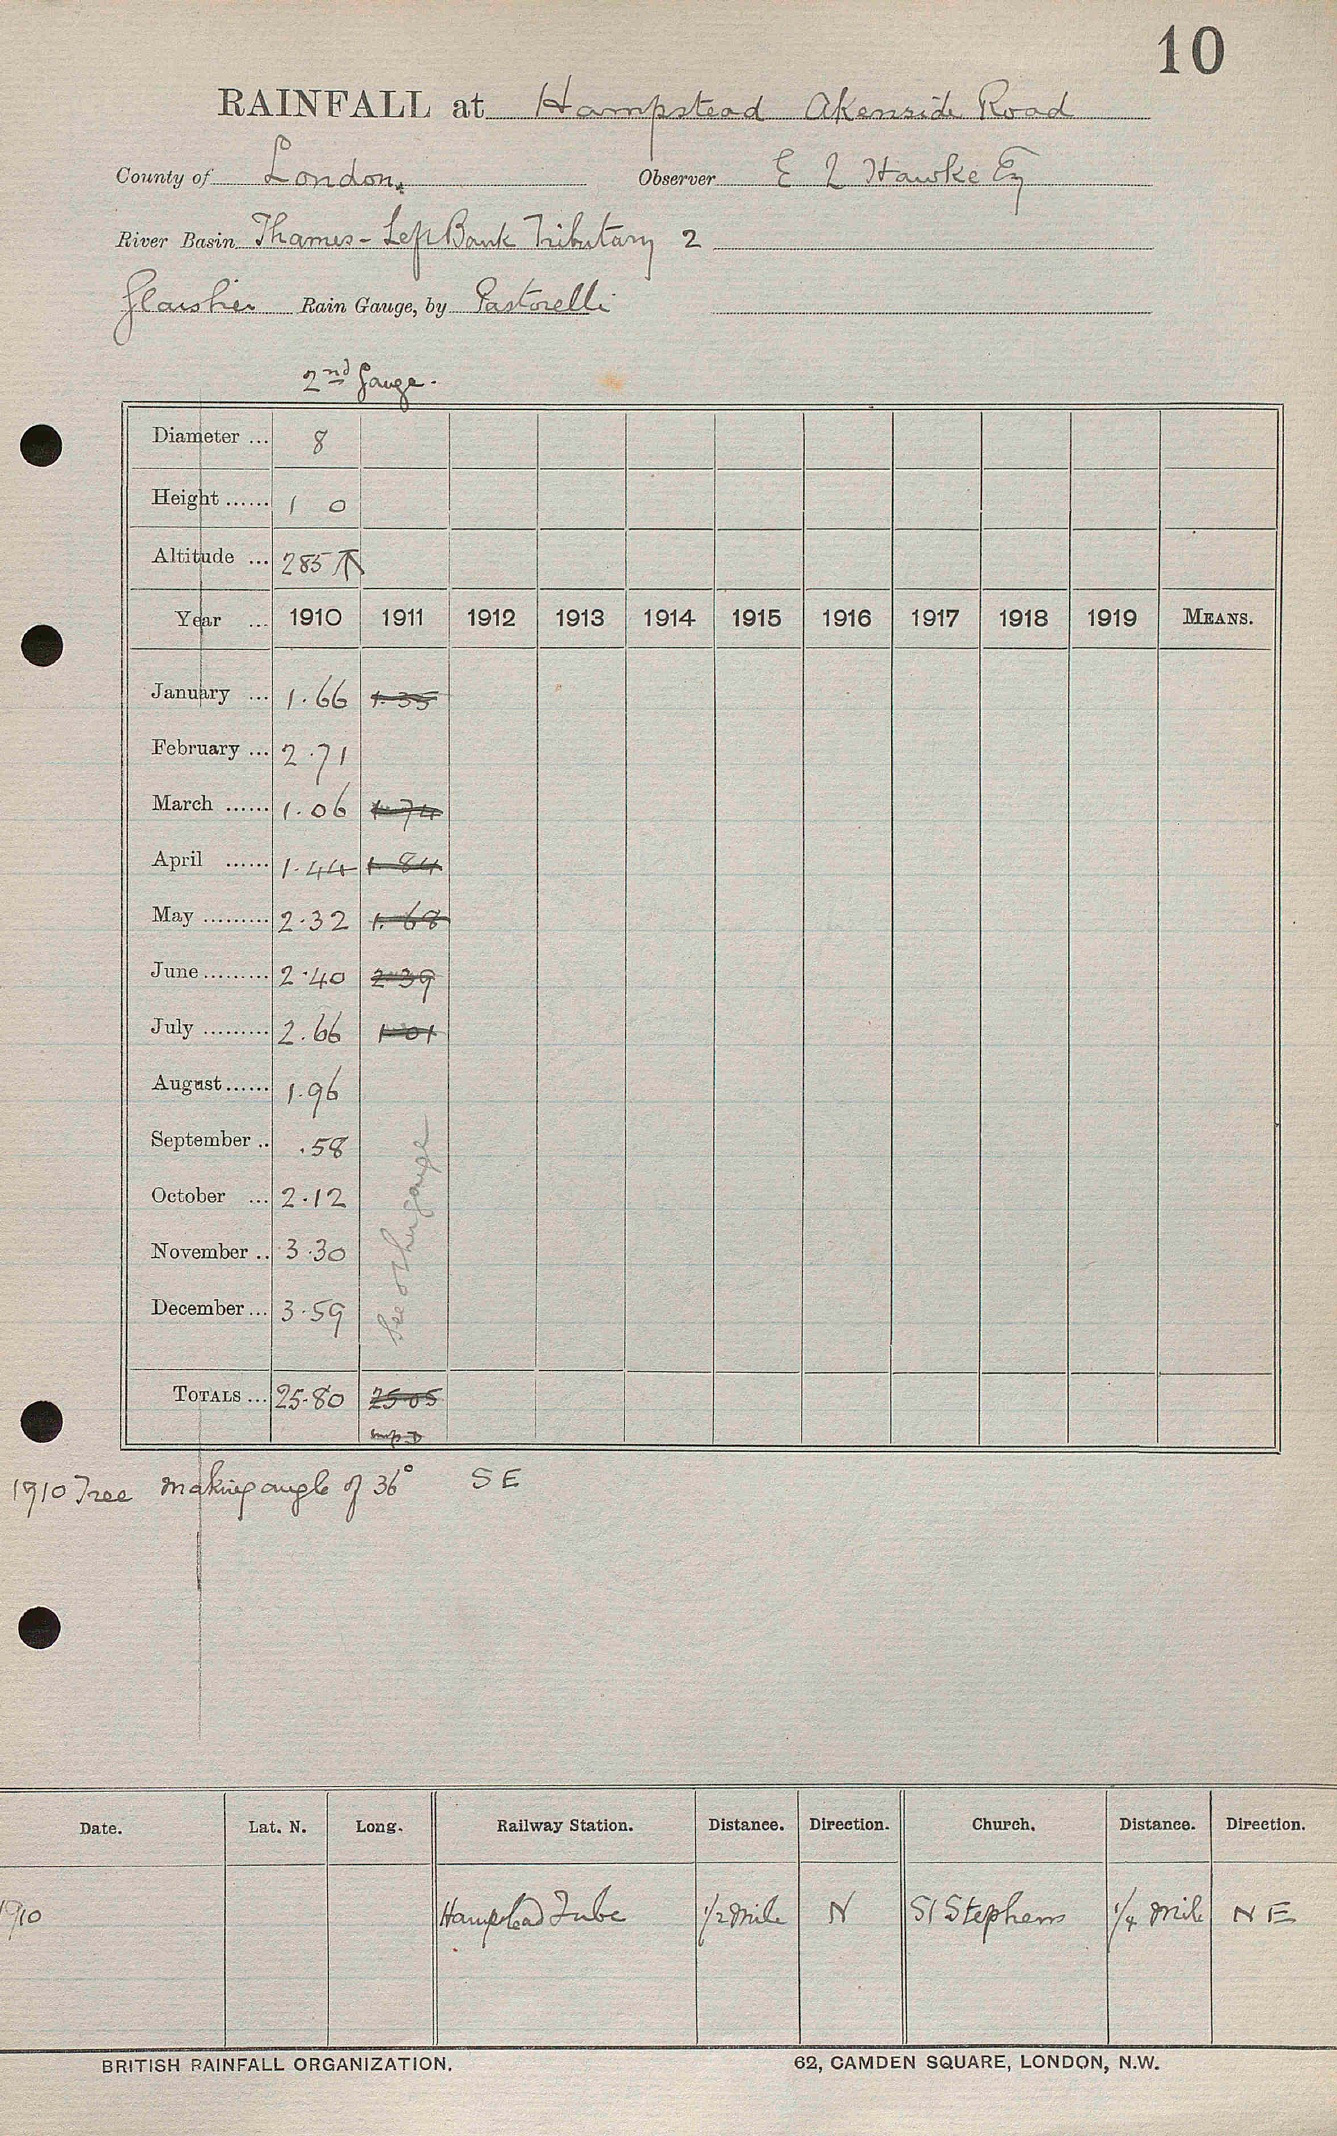 10
RAINFALL at Hampstead Akenside Road
County of London. Observer E L Hawke Esq
River Basin Thames - Left Bank Tributary 2
Glaisher Rain Gauge, by Pastorelli
2nd Gauge.
Diameter ... 8
Height ...... 1 0
Altitude ... 285
Year ... 1910 1911 1912 1913 1914 1915 1916 1917 1918 1919 MEANS.
January ... 1.66 1.35
February ... 2.71
March ...... 1.06 1.74
April ...... 1.44 1.84
May ......... 2.32 1.68
June ......... 2.40 2.39
July ......... 2.66 1.01
August ...... 1.96
September .. .58
October ... 2.12
November .. 3.30
December ... 3.59
See other gauge
TOTALS ... 25.80 25.05
1910 Tree making angle of 36° SE
Date. Lat. N. Long. Railway Station. Distance. Direction. Church. Distance. Direction.
1910 Hampstead Tube 1/2 Mile N St Stephens 1/4 Mile NE
BRITISH RAINFALL ORGANIZATION. 62, CAMDEN SQUARE, LONDON, N.W.